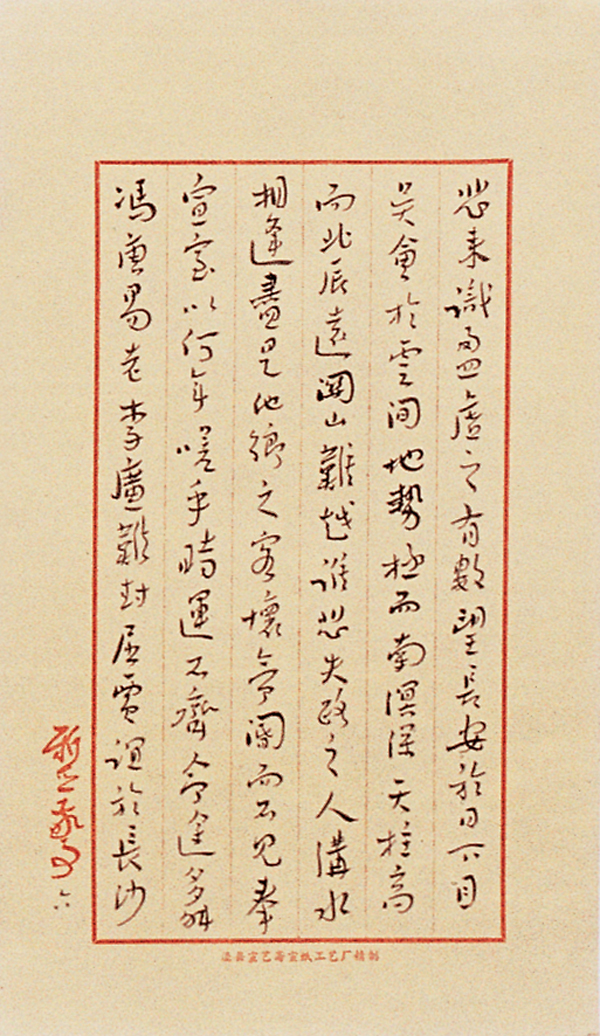 悲来識盈虛之有數望長安於日下目
吳會於雲間地勢極而南溟深天柱高
而北辰遠關山難越誰悲失路之人溝水
相逢盡是他鄉之客懷帝閽而不見奉
宣室以何年嗟乎時運不齊命途多舛
馮唐易老李廣難封屈賈誼於長沙
六
泾县宣艺斋宣纸工艺厂精制